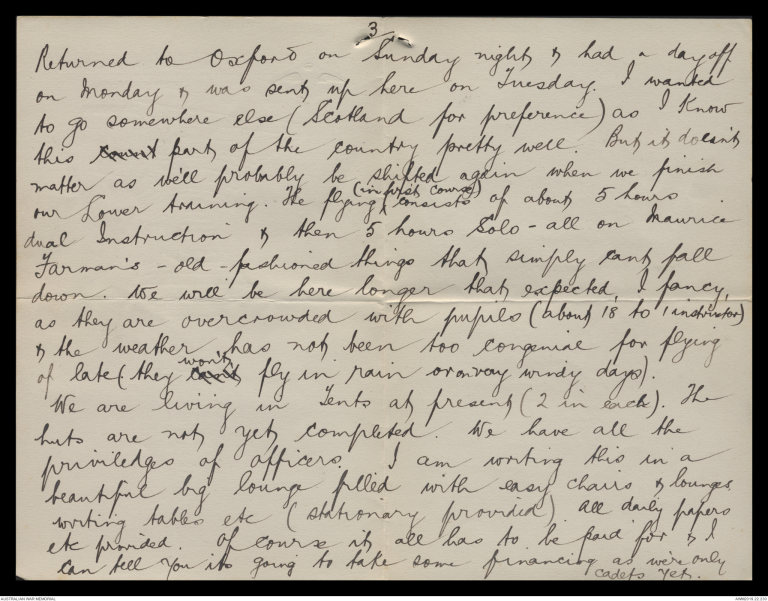 3
Returned to Oxford on Sunday night & had a day off
on Monday & was sent up here on Tuesday. I wanted
to go somewhere else (Scotland for preference) as I know
this count part of the country pretty well. But it doesn't
matter as we'll probably be shifted again when we finish
our Lower training. The flying (in first course) consists of about 5 hours
dual Instruction & then 5 hours Solo - all on Maurice
Farman's - old - fashioned things that simply cant fall
down. We will be here longer that expected, I fancy,
as they are overcrowded with pupils (about 18 to 1 instructor)
& the weather has not been too congenial for flying
of late (they can't won't fly in rain or on very windy days).
We are living in Tents at present (2 in each). The
huts are not yet completed. We have all the
priviledges of officers. I am writing this in a
beautiful big lounge filled with easy chairs & lounges
writing tables etc (stationary provided) all daily papers
etc provided. Of course it all has to be paid for & I
can tell you its going to take some financing as we're only
cadets yet.
AUSTRALIAN WAR MEMORIAL